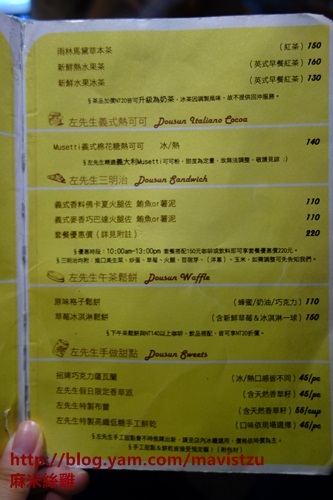 雨林馬黛草本茶 (紅茶) 150
新鮮熱水果茶 (英式早餐紅茶) 160
新鮮水果冰茶 (英式早餐紅茶) 130
§茶品加價NT20皆可升級為奶茶, 冰茶因調製風味, 故不提供回沖服務。
左先生義式熱可可 Dousun Italiano Cocoa
Musetti義式棉花糖熱可可 冰/熱 140
§左先生精選義大利Musetti可可粉, 甜度為定量, 故無法調整, 敬請見諒 :)
左先生三明治 Dousun Sandwich
義式香料佛卡夏火腿佐 鮪魚or薯泥 110
義式麥香巧巴達火腿佐 鮪魚or薯泥 110
套餐優惠價(詳見附註) 220
§優惠時段:10:00am~13:00pm 套餐搭配150元咖啡或飲料即可享套餐優惠價220元。
§三明治內附:進口美生菜、紗蛋、草莓、火腿、苜蓿芽。(洋蔥)、玉米, 如需調整可先告知我們。
左先生午茶鬆餅 Dousun Waffle
原味格子鬆餅 (蜂蜜/奶油/巧克力) 110
草莓冰淇淋鬆餅 (含新鮮草莓&冰淇淋一球) 150
§下午茶鬆餅與NT140以上咖啡、飲品搭配, 皆可享NT20折價。
左先生手做甜點 Dousun Sweets
招牌巧克力薩瓦蘭 (冰/熱口感皆不同) 45/pc
左先生假日限定香派 (含天然香草籽) 45/pc
左先生特製布蕾 (含天然香草籽) 55/cup
左先生特製高纖低糖手工餅乾 (口味依現場選擇) 45/pc
§左先生手工甜點會不時推陳出新, 請至店內冰櫃選用, 價格依時價為主。
http://blog.yam.com/mavistzu
麻米絲雞